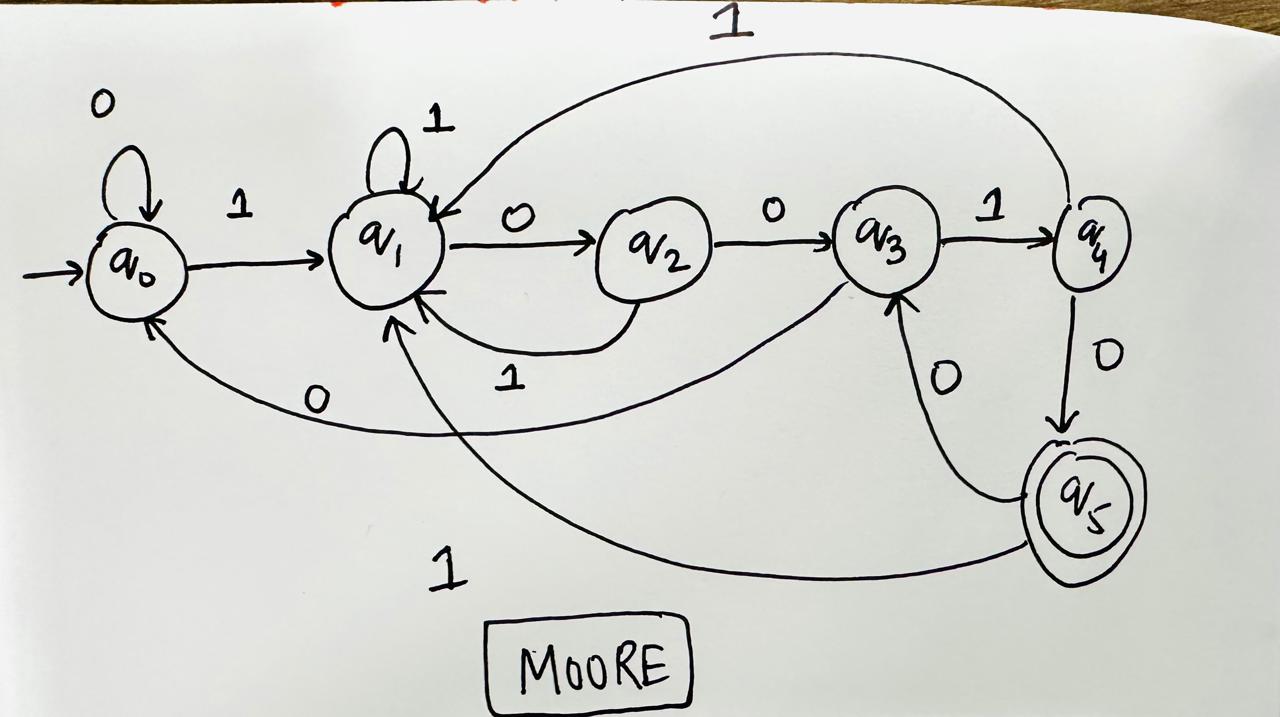 1
0
1
1
0
0
1
q0
q1
q2
q3
q4
1
0
0
0
q5
1
MOORE